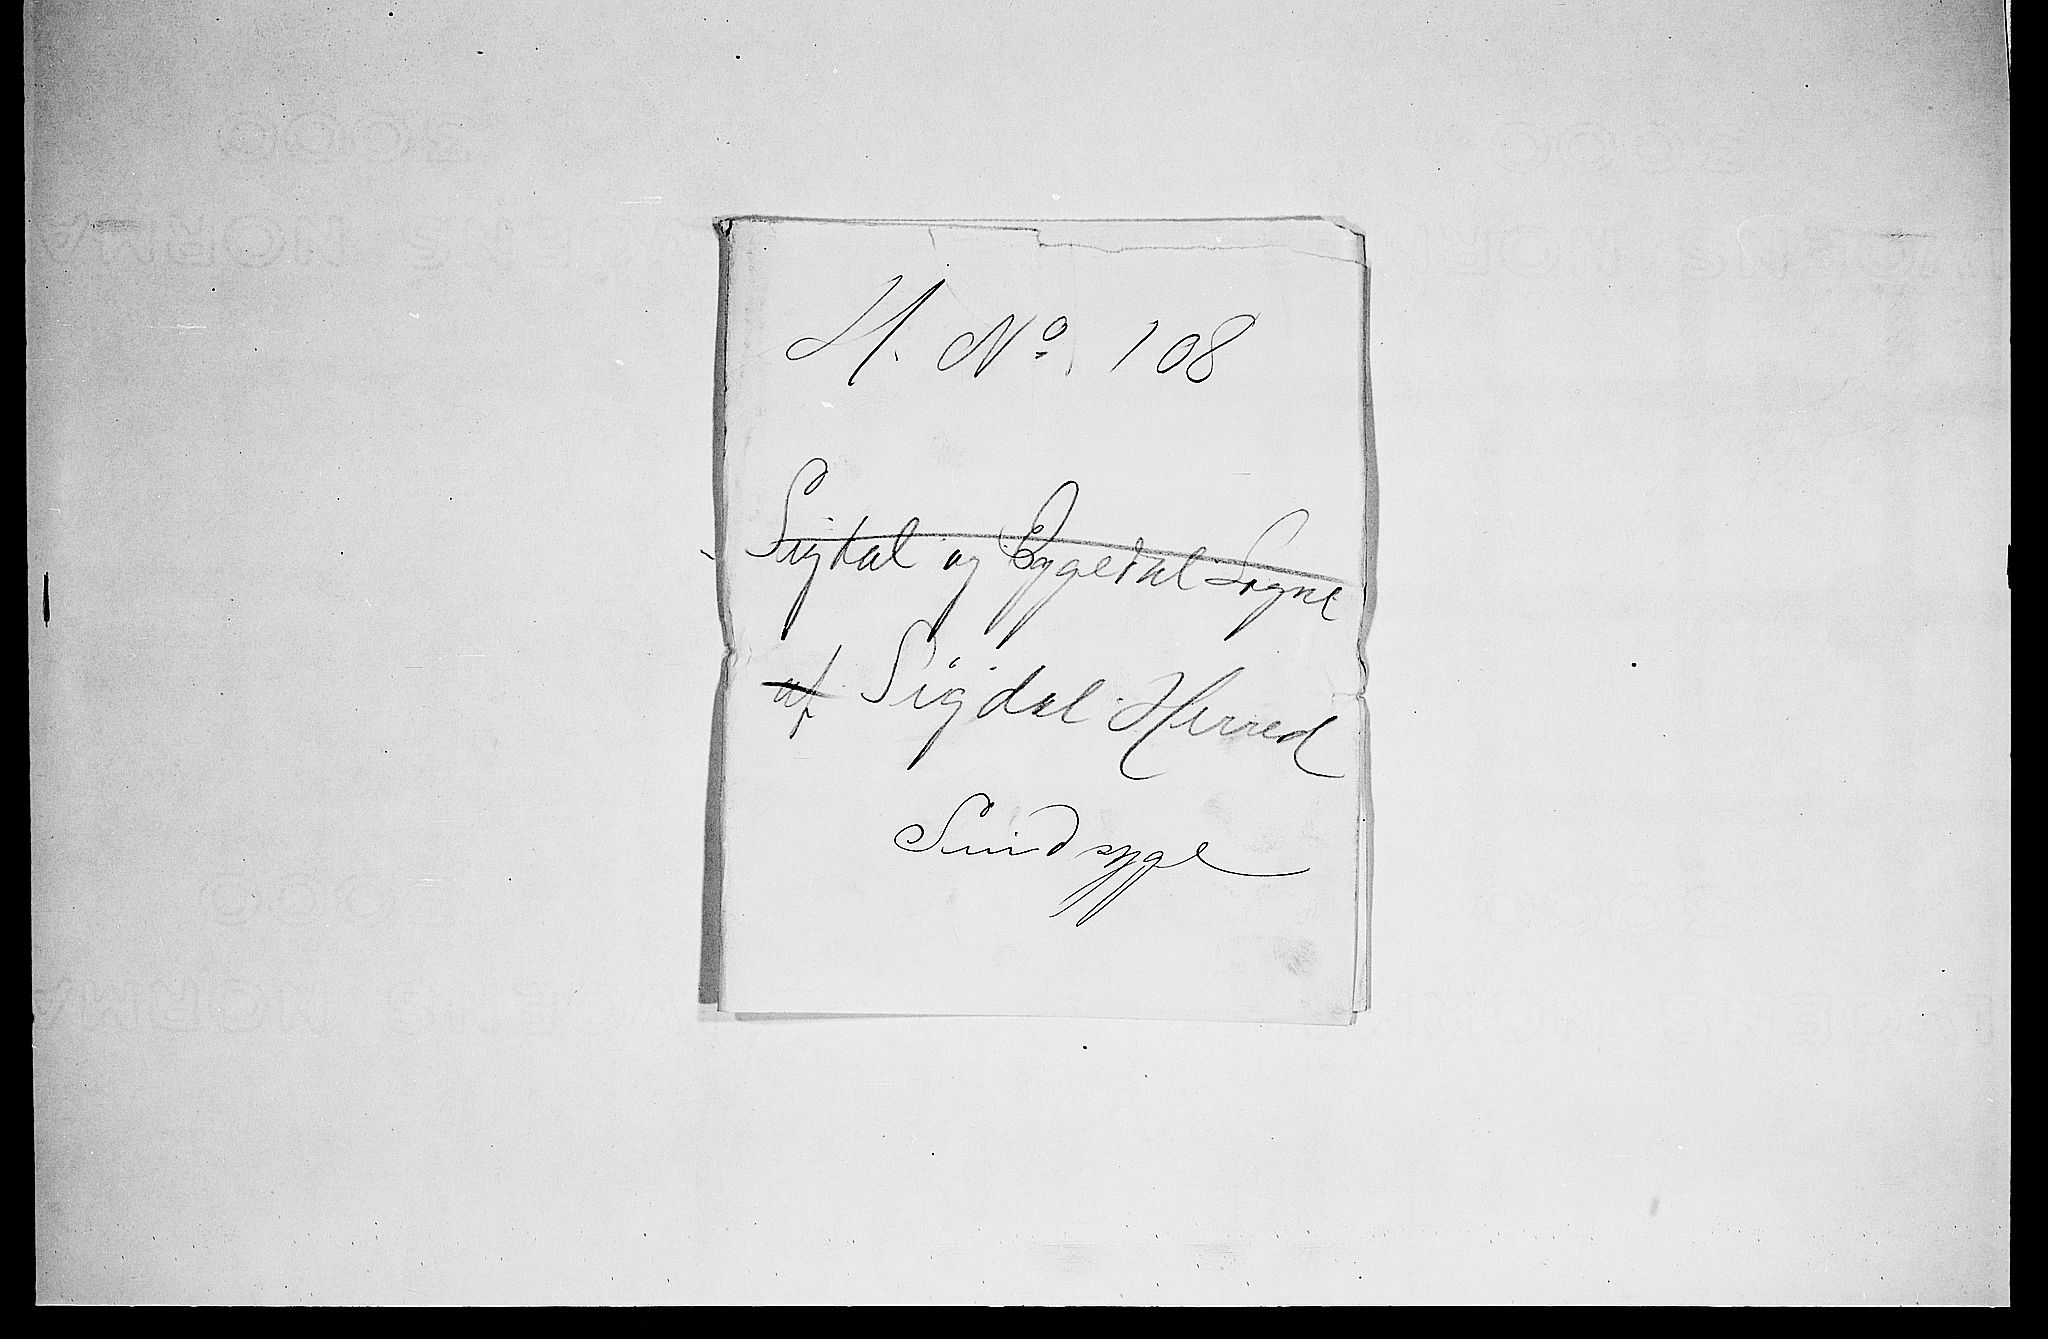 H. No. 108
Sigdal og Eggedal Sogne
af Sigdal Herred
Sindsyge